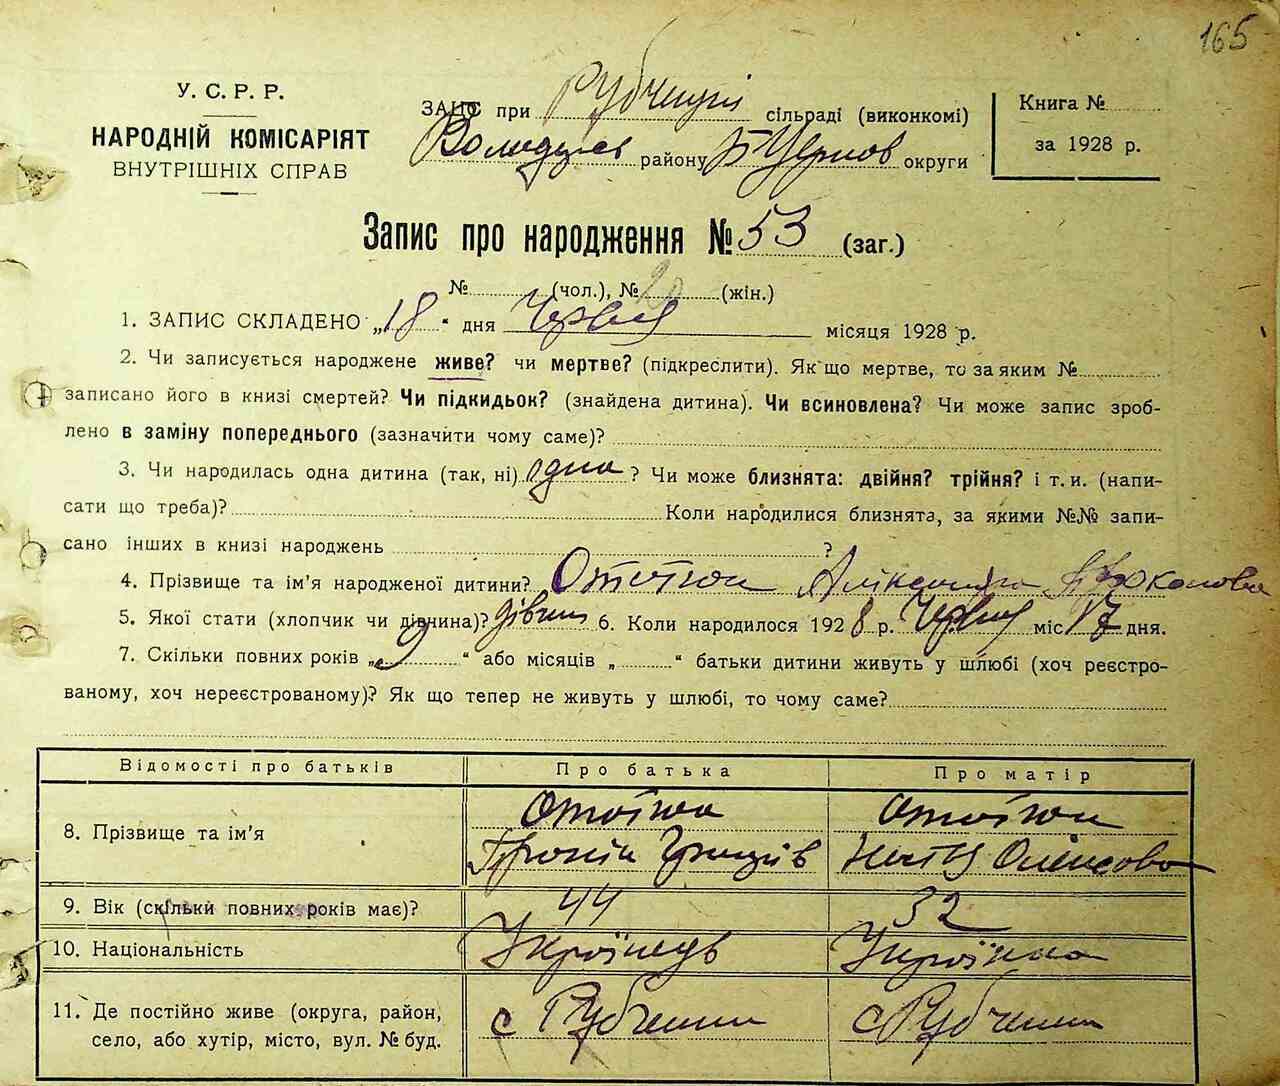 165
У. С. Р. Р.
НАРОДНІЙ КОМІСАРІЯТ
ВНУТРІШНІХ СПРАВ
ЗАПС при Рубченці сільраді (виконкомі)
Володарс району Б Церков округи
Книга №
за 1928 р.
Запис про народження № 53 (заг.)
№ (чол.), № 20 (жін.)
1. ЗАПИС СКЛАДЕНО „18“ дня Червня місяця 1928 р.
2. Чи записується народжене живе? чи мертве? (підкреслити). Як що мертве, то за яким №
записано його в книзі смертей? Чи підкидьок? (знайдена дитина). Чи всиновлена? Чи може запис зроб-
лено в заміну попереднього (зазначити чому саме)?
3. Чи народилась одна дитина (так, ні) одна ? Чи може близнята: двійня? трійня? і т. и. (напи-
сати що треба)? Коли народилися близнята, за якими №№ запи-
сано інших в книзі народжень ?
4. Прізвище та ім'я народженої дитини?
5. Якої стати (хлопчик чи дівчина)? дівчин 6. Коли народилося 1928 р. Червня міс 17 дня.
7. Скільки повних років „9“ або місяців „ “ батьки дитини живуть у шлюбі (хоч реєстро-
ваному, хоч нереєстрованому)? Як що тепер не живуть у шлюбі, то чому саме?
Відомості про батьків Про батька Про матір
8. Прізвище та ім'я
9. Вік (скільки повних років має)? 44 32
10. Національність Українець Українка
11. Де постійно живе (округа, район, с Рубченки с Рубченки
село, або хутір, місто, вул. № буд.